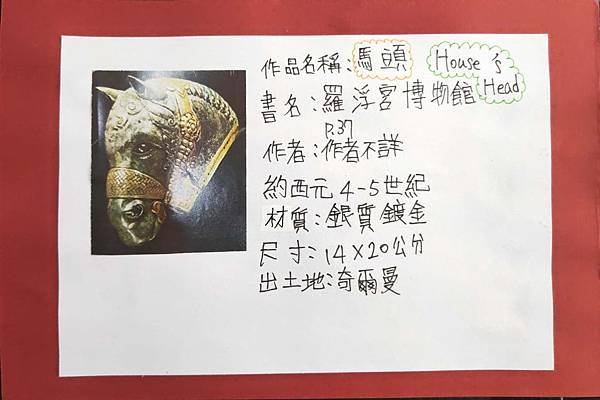 作品名稱：馬頭 House's
書名：羅浮宮博物館 Head
P.37
作者：作者不詳
約西元4-5世紀
材質：銀質鍍金
尺寸：14X20公分
出土地：奇爾曼